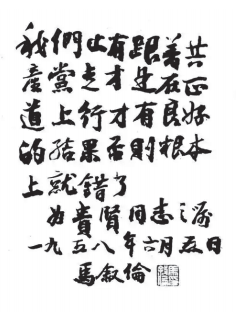 我們止有跟着共
產黨走才是在正
道上行才有良好
的结果否則根本
上就錯了
為貴賢同志之屬
一九五八年六月五日
馬叙倫